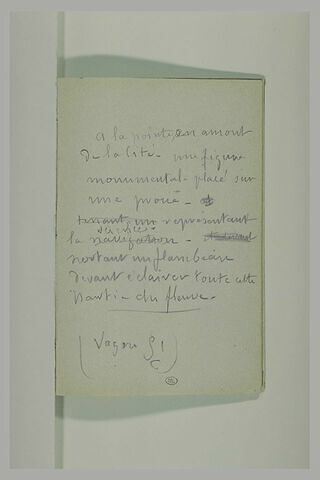 a la pointe, en amont
de la Cité - une figure
monumental - placé sur
une proue -
tenant, un représentant
la navigation -
portant un flambeau
devant éclairer toute cette
parti - du fleuve -
(Vagon